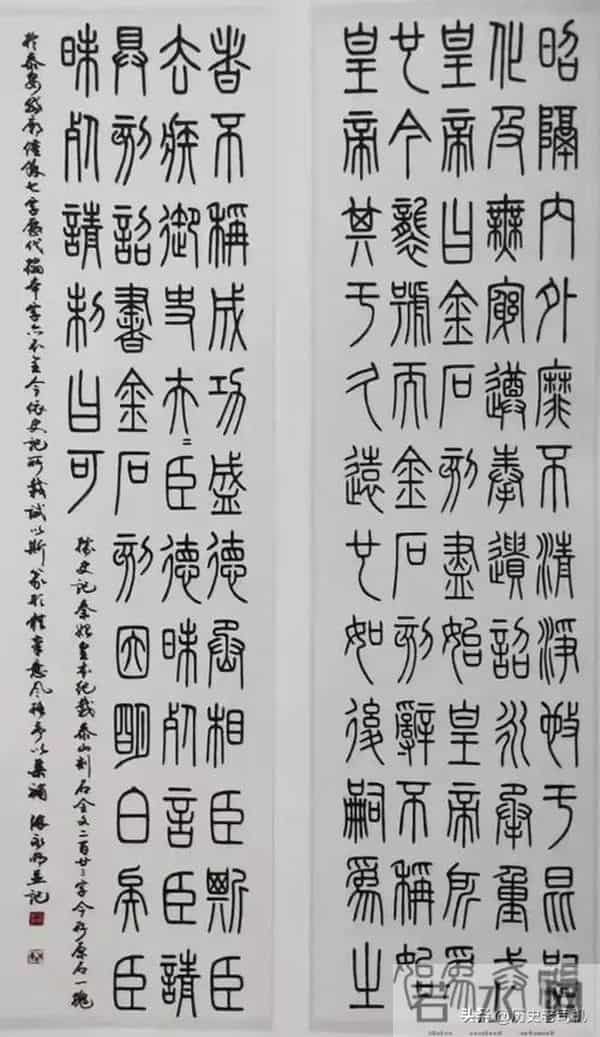 昭隔內外靡不清淨施于昆
化及無窮遵奉遺詔永承重戒
皇帝曰金石刻盡始皇帝所爲
也今襲號而金石刻辭不稱始
皇帝其于久遠也如後嗣爲之
者不稱成功盛德丞相臣斯臣
去疾御史夫=臣德昧死言臣請
具刻詔書金石刻因明白矣臣
昧死請制曰可
史記秦始皇本紀載泰山刻石全文二百廿字今原石一塊
於泰安岱廟僅餘七字歷代搨本字亦不全今依史記所載試以斯篆形體筆意風格予以集補 永明並記
头条@历史老司机